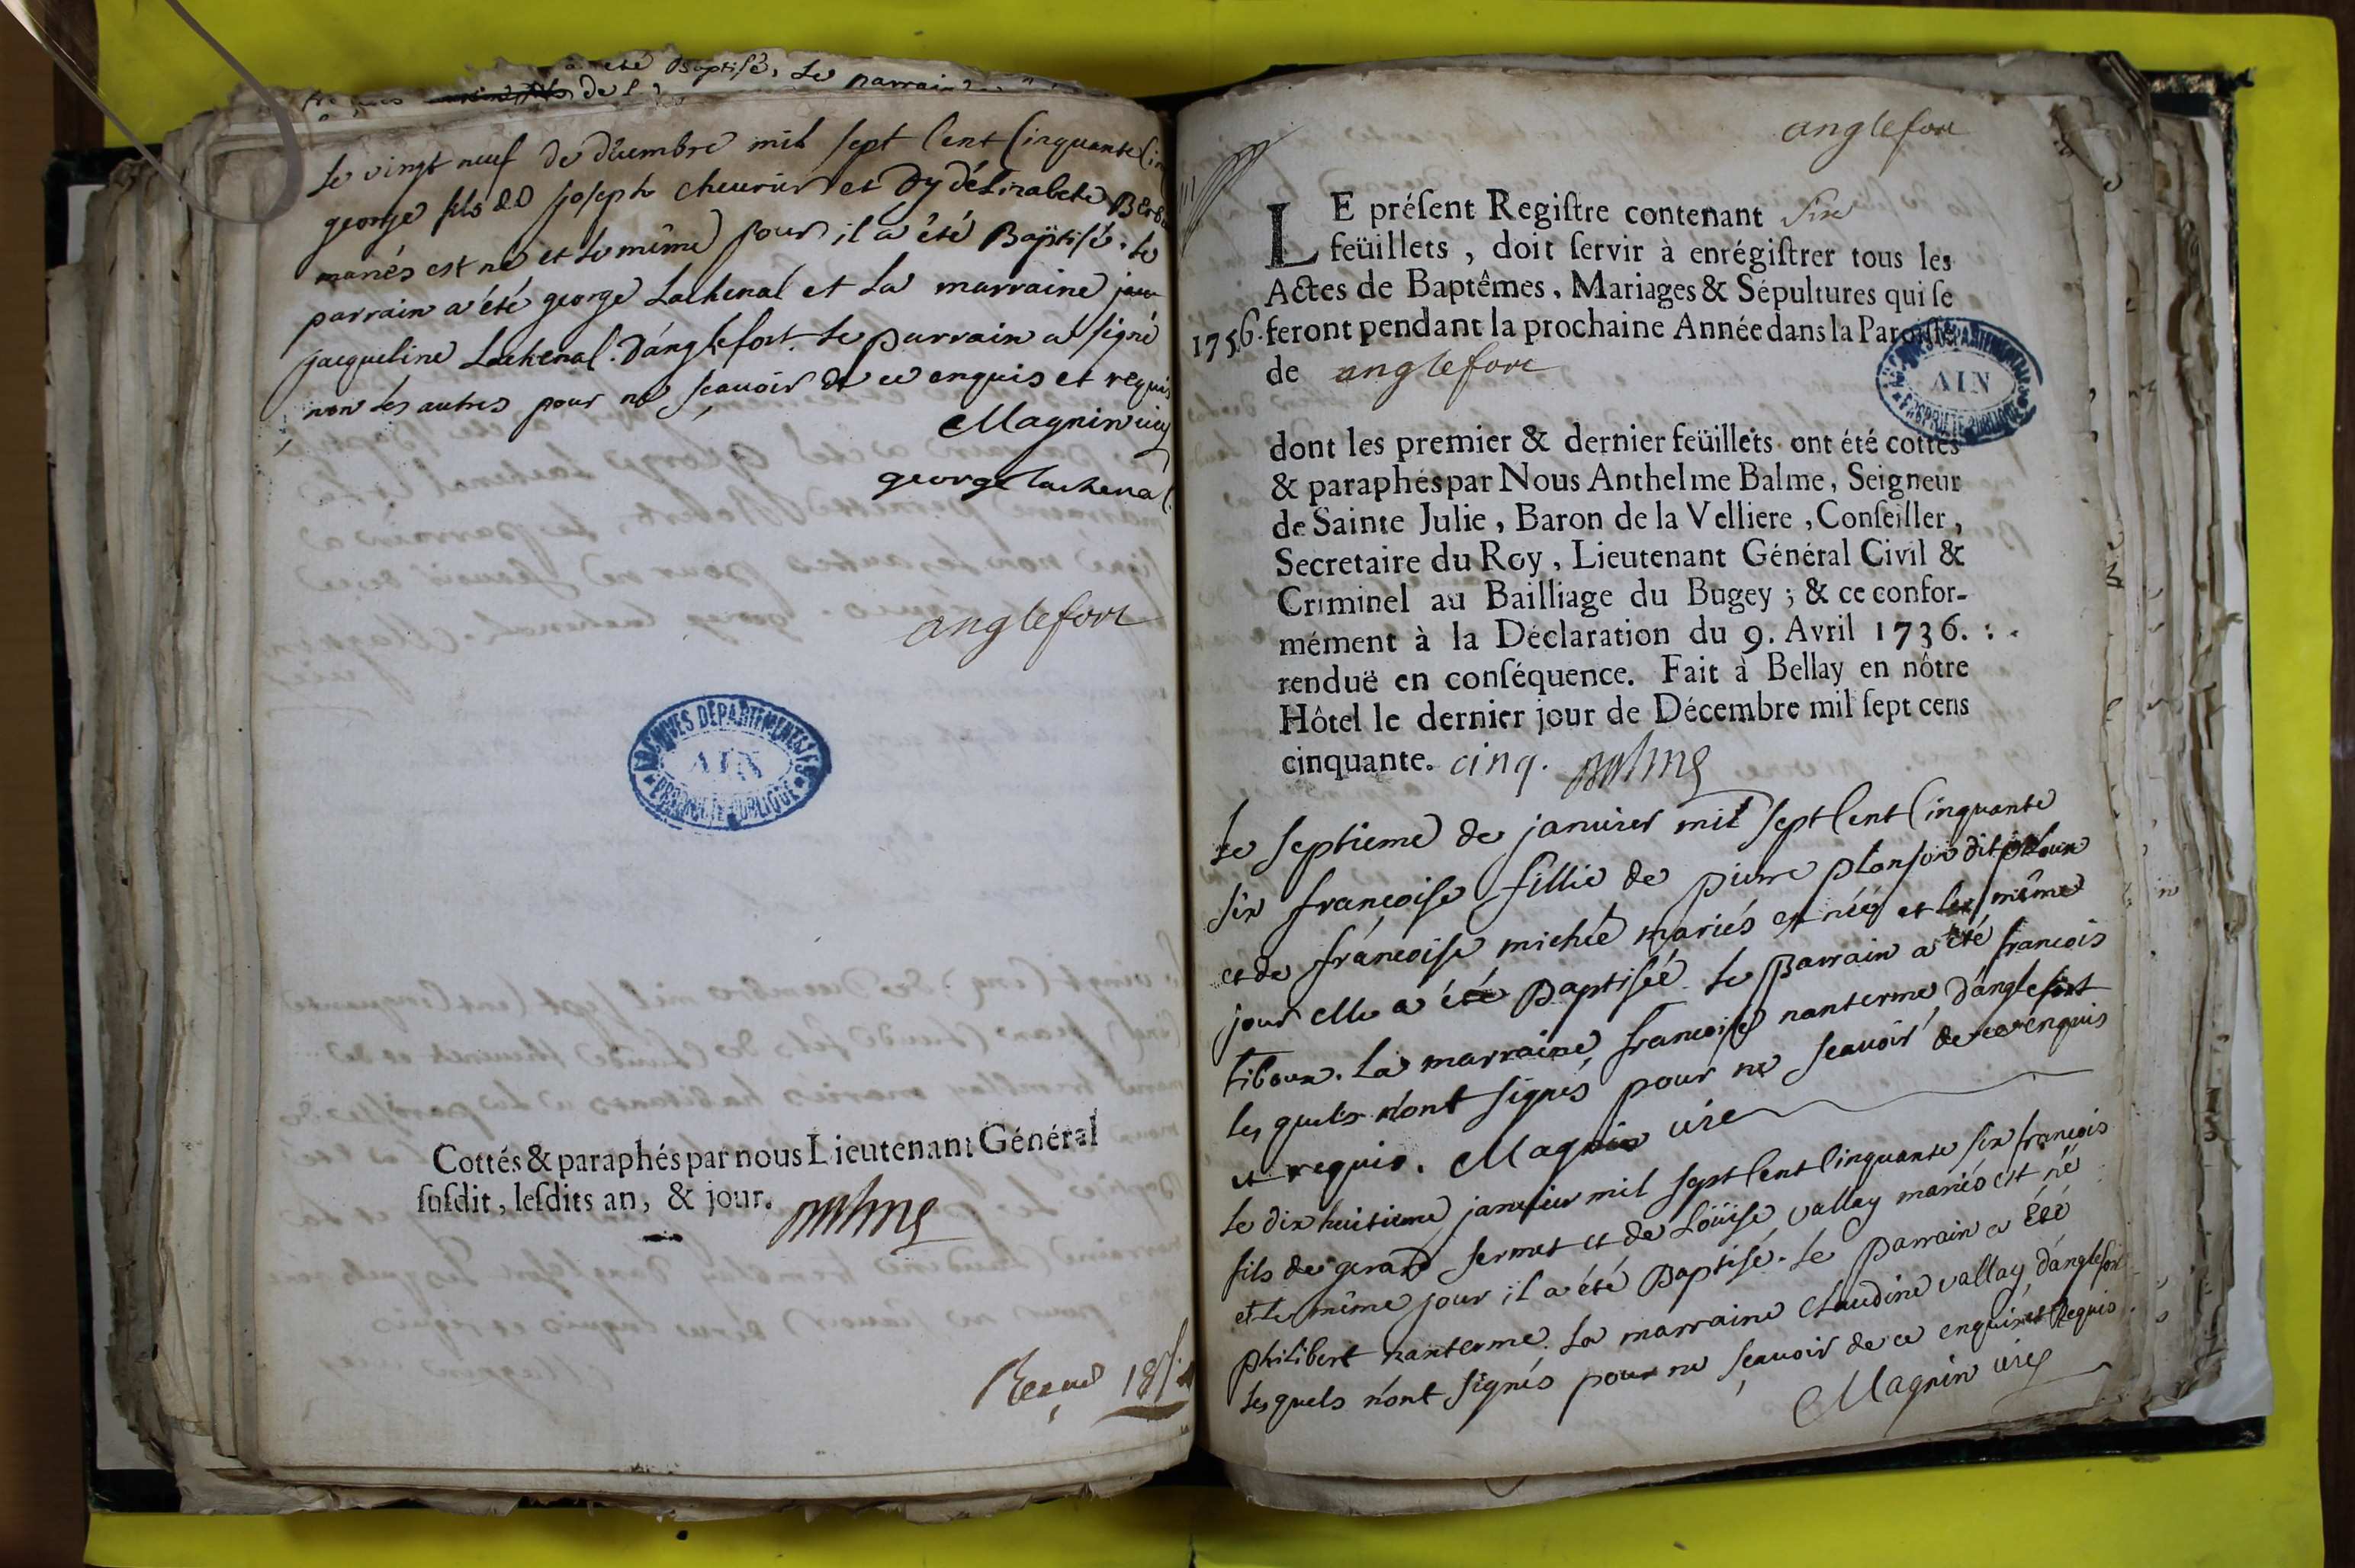 a été Baptisé, Le parrain
de
Le vingt neuf de decembre mil sept Cent Cinquante Cin
george fils de joseph cheurier et dy d'Elizabete
mariés est né et le même jour il a été Baptisé. Le
parrain a été george Lachenal et La marraine
jacqueline Lachenal. D'anglefort. Le parrain a signé
non Les autres pour ne sçauoir de ce enquis et requis
Magnin curé
george lachenal
anglefort
ARCHIVES DEPARTEMENTALES
AIN
PROPRIETE PUBLIQUE
Cottés & paraphés par nous Lieutenant Général
susdit, lesdits an, & jour. Balme
anglefort
LE présent Registre contenant six
feüillets, doit servir à enrégistrer tous les
Actes de Baptêmes, Mariages & Sépultures qui se
1756. feront pendant la prochaine Année dans la Paroisse
de anglefort
ARCHIVES DEPARTEMENTALES
AIN
PROPRIETE PUBLIQUE
dont les premier & dernier feüillets ont été cottés
& paraphés par Nous Anthelme Balme, Seigneur
de Sainte Julie, Baron de la Velliere, Conseiller,
Secretaire du Roy, Lieutenant Général Civil &
Criminel au Bailliage du Bugey; & ce confor-
mément à la Déclaration du 9. Avril 1736.
renduë en conséquence. Fait à Bellay en nôtre
Hôtel le dernier jour de Décembre mil sept cens
cinquante. cinq. Balme
Le septieme de januier mil sept Cent Cinquante
six françoise fillie de pierre planson dit
et de françoise michel mariés est née et le même
jour elle a été Baptisée. Le parrain a été francois
tiboux. La marraine francoise nanterme, d'anglefort
les quels n'ont signés pour ne scauoir de ce enquis
et requis. Magnin curé
Le dix huitieme januier mil sept Cent Cinquante six francois
fils de gerard fermet et de Loüise vallay mariés est né
et le même jour il a été Baptisé. Le parrain a été
philibert nanterme. La marraine Claudine vallay d'anglefort
Les quels n'ont signés pour ne sçauoir de ce enquis et Requis.
Magnin curé